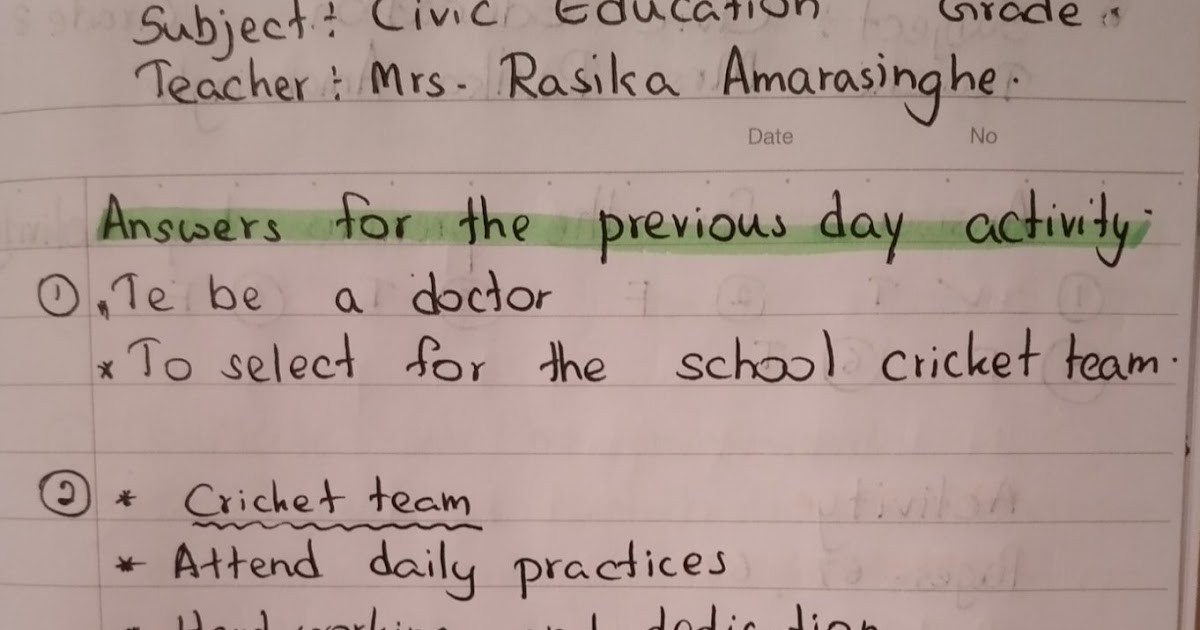 Subject : Civic Education Grade :
Teacher : Mrs. Rasika Amarasinghe.
Date No
Answers for the previous day activity:
① * Te be a doctor
* To select for the school cricket team.
② * Cricket team
* Attend daily practices
* Hard working and dedication